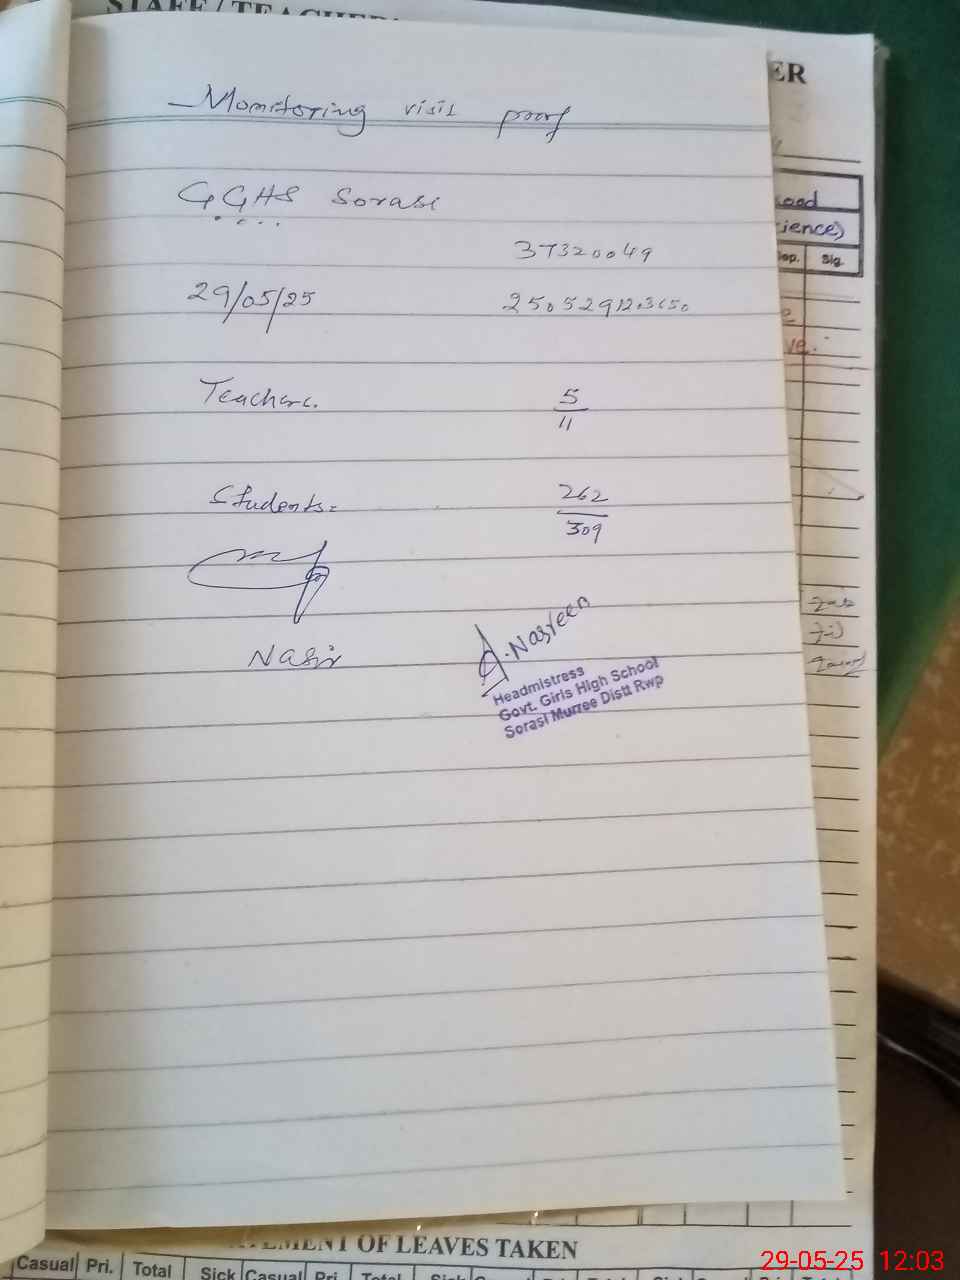 STAFF / TEACHER
ER
Monitoring visit proof
GGHS Sorasi
37320049
29/05/25
Teachers.
5
11
Students.
262
309
Nasir
A. Nasreen
Headmistress
Govt. Girls High School
Sorasi Murree Distt Rwp
oad
ience)
op. Sig.
ve.
OF LEAVES TAKEN
Casual Pri. Total Sick Casual Pri. Total Sick
29-05-25 12:03